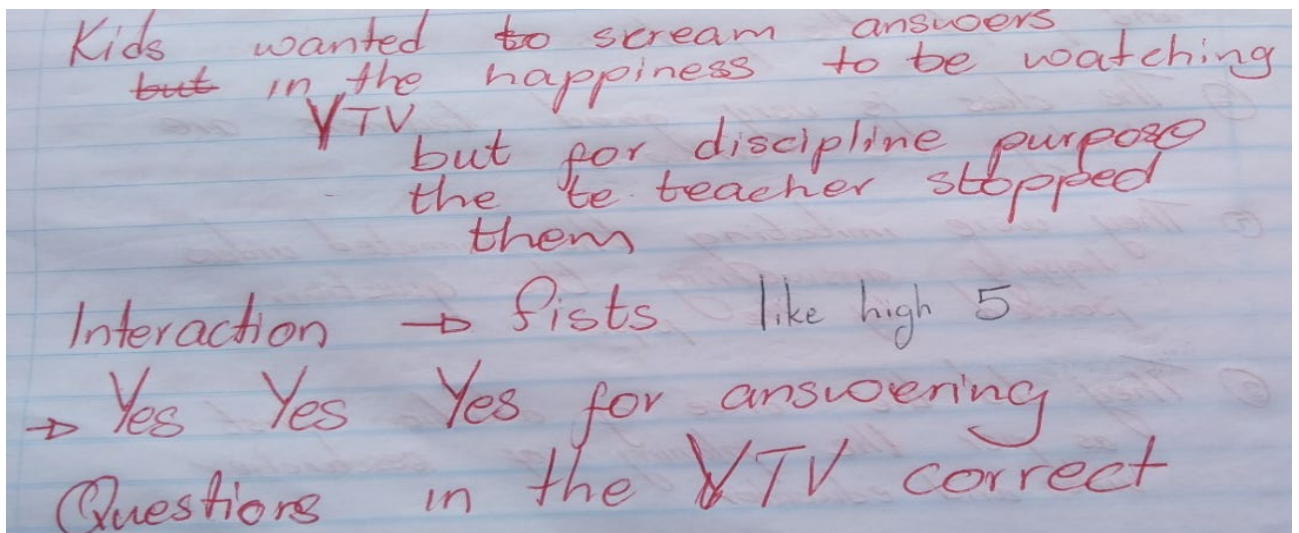 Kids wanted to scream answers
but in the happiness to be watching
YTV
but for discipline purpose
the te teacher stopped
them
Interaction → fists like high 5
→ Yes Yes Yes for answering
Questions in the YTV correct